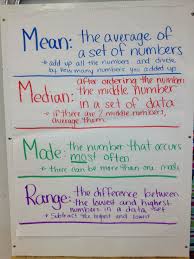 Mean: the average of
a set of numbers
* add up all the numbers and divide
by how many numbers you added up
after ordering the numbers
Median: the middle number
in a set of data
* if there are 2 middle numbers,
average them
Mode: the number that occurs
most often
* there can be more than one mode
Range: the difference between
the lowest and highest
numbers in a data set
* Subtract the highest and lowest